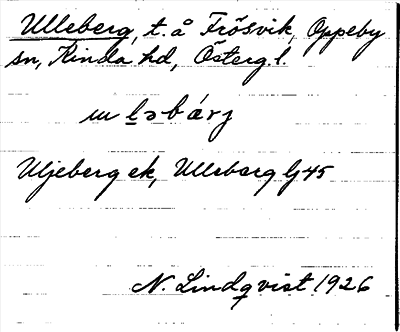 Ulleberg, t. å Frösvik, Oppeby
sn, Kinda hd, Österg. l.
ɯ lǝbárj
Uljeberg ek, Ulleberg Gj 45
N. Lindqvist 1926